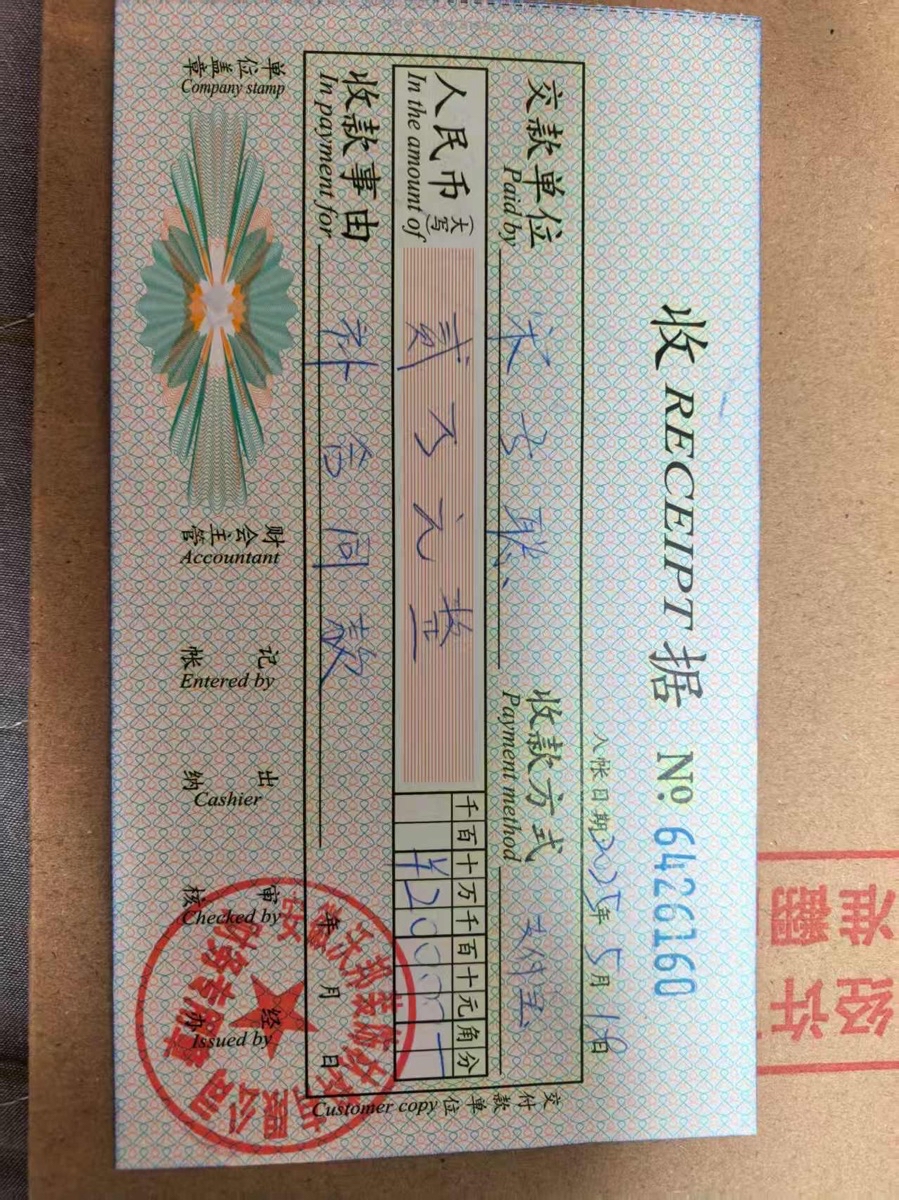 收 RECEIPT 据 № 6426160
入帐日期 2025年 5月 1日
交款单位 收款方式 支付宝
Paid by Payment method
人民币 (大写) 贰万元整 千百十万千百十元角分
In the amount of
收款事由 补合同款
In payment for 年 月 日
单位盖章 财会主管 记帐 出纳 审核 经办
Company stamp Accountant Entered by Cashier Checked by Issued by
交付款单位
Customer copy
财务专用章
有限公司
准翻
经许